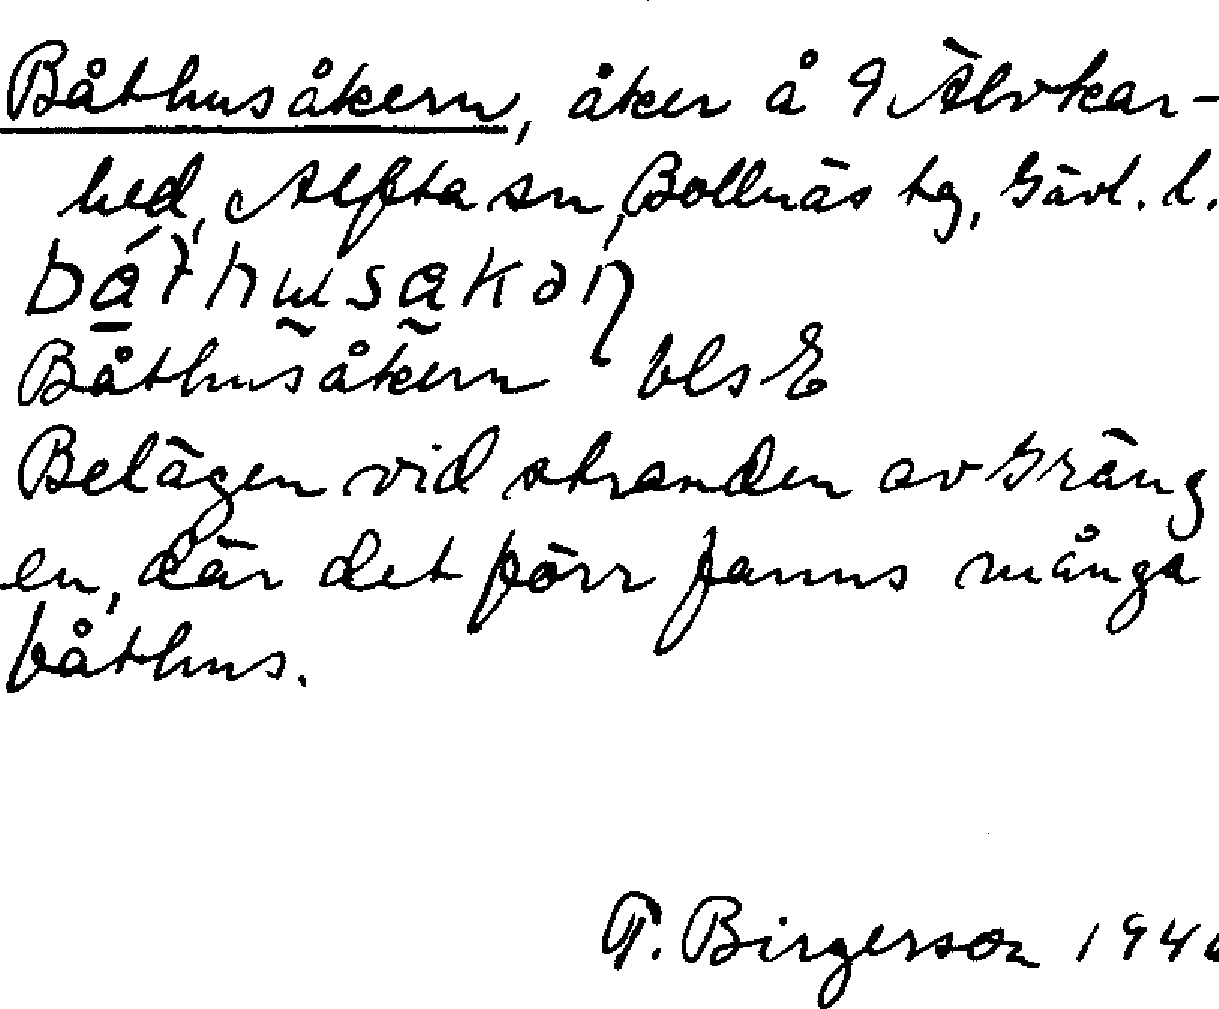 Båthusåkern, åker å 9 Älvkar-
hed, Alfta sn, Bollnäs tg, Gävl. l.
Båthusåkern bls E
Belägen vid stranden av Gräng
en, där det förr fanns många
båthus.
T. Birgerson